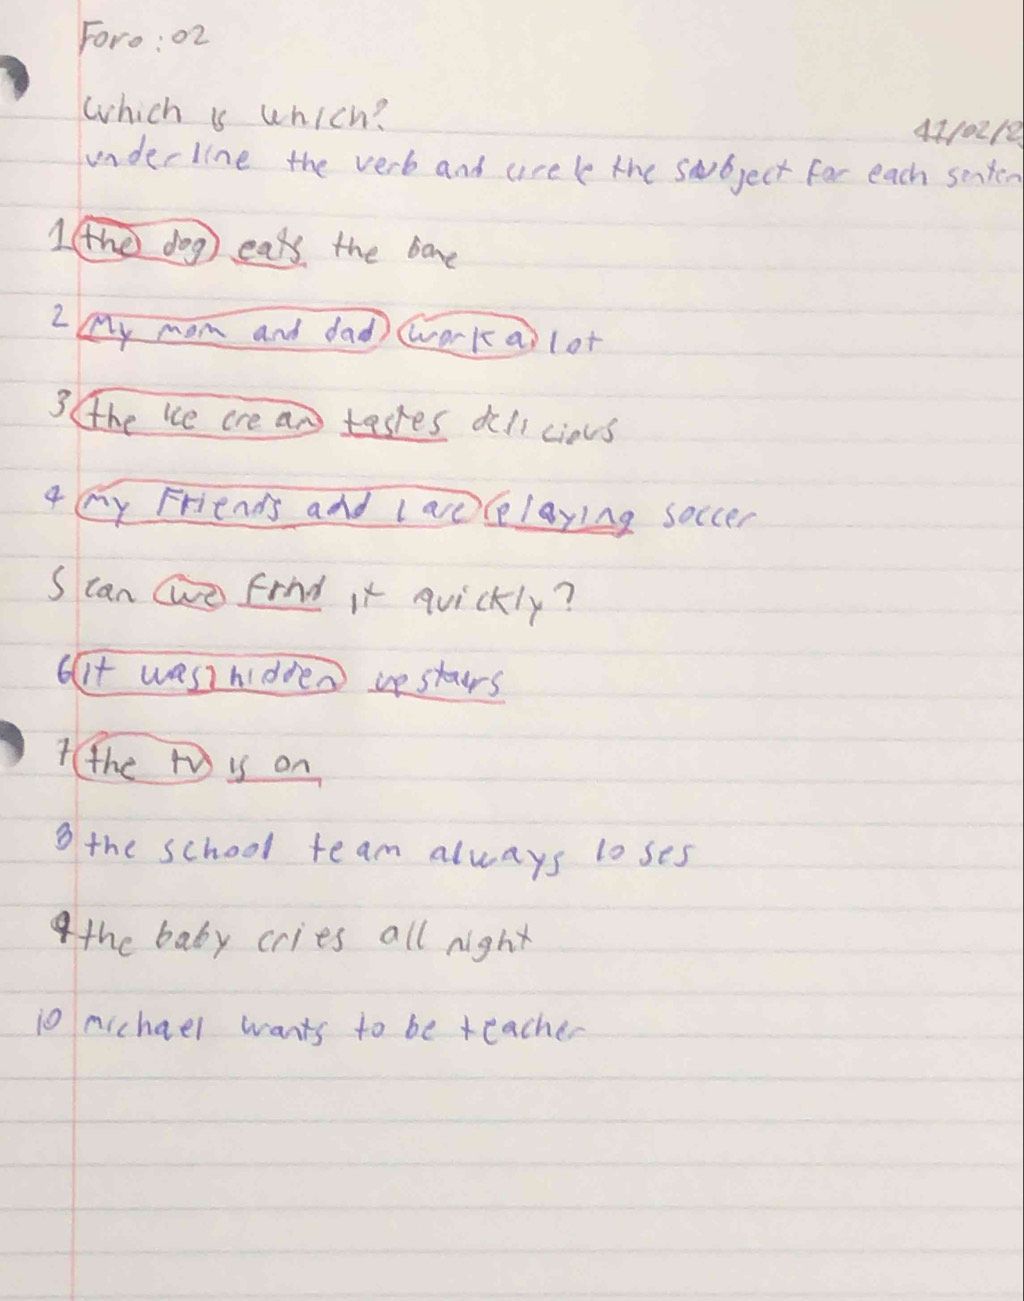 Foro: 02
Which is which?
11/02/2
underline the verb and circle the subject for each senten
1 the dog eats the bone
2 My mom and dad work a lot
3 the ice cream tastes delicious
4 my Friends and I are playing soccer
5 can we find it quickly?
6 it was hidden upstairs
7 the tv is on
8 the school team always loses
9 the baby cries all night
10 michael wants to be teacher